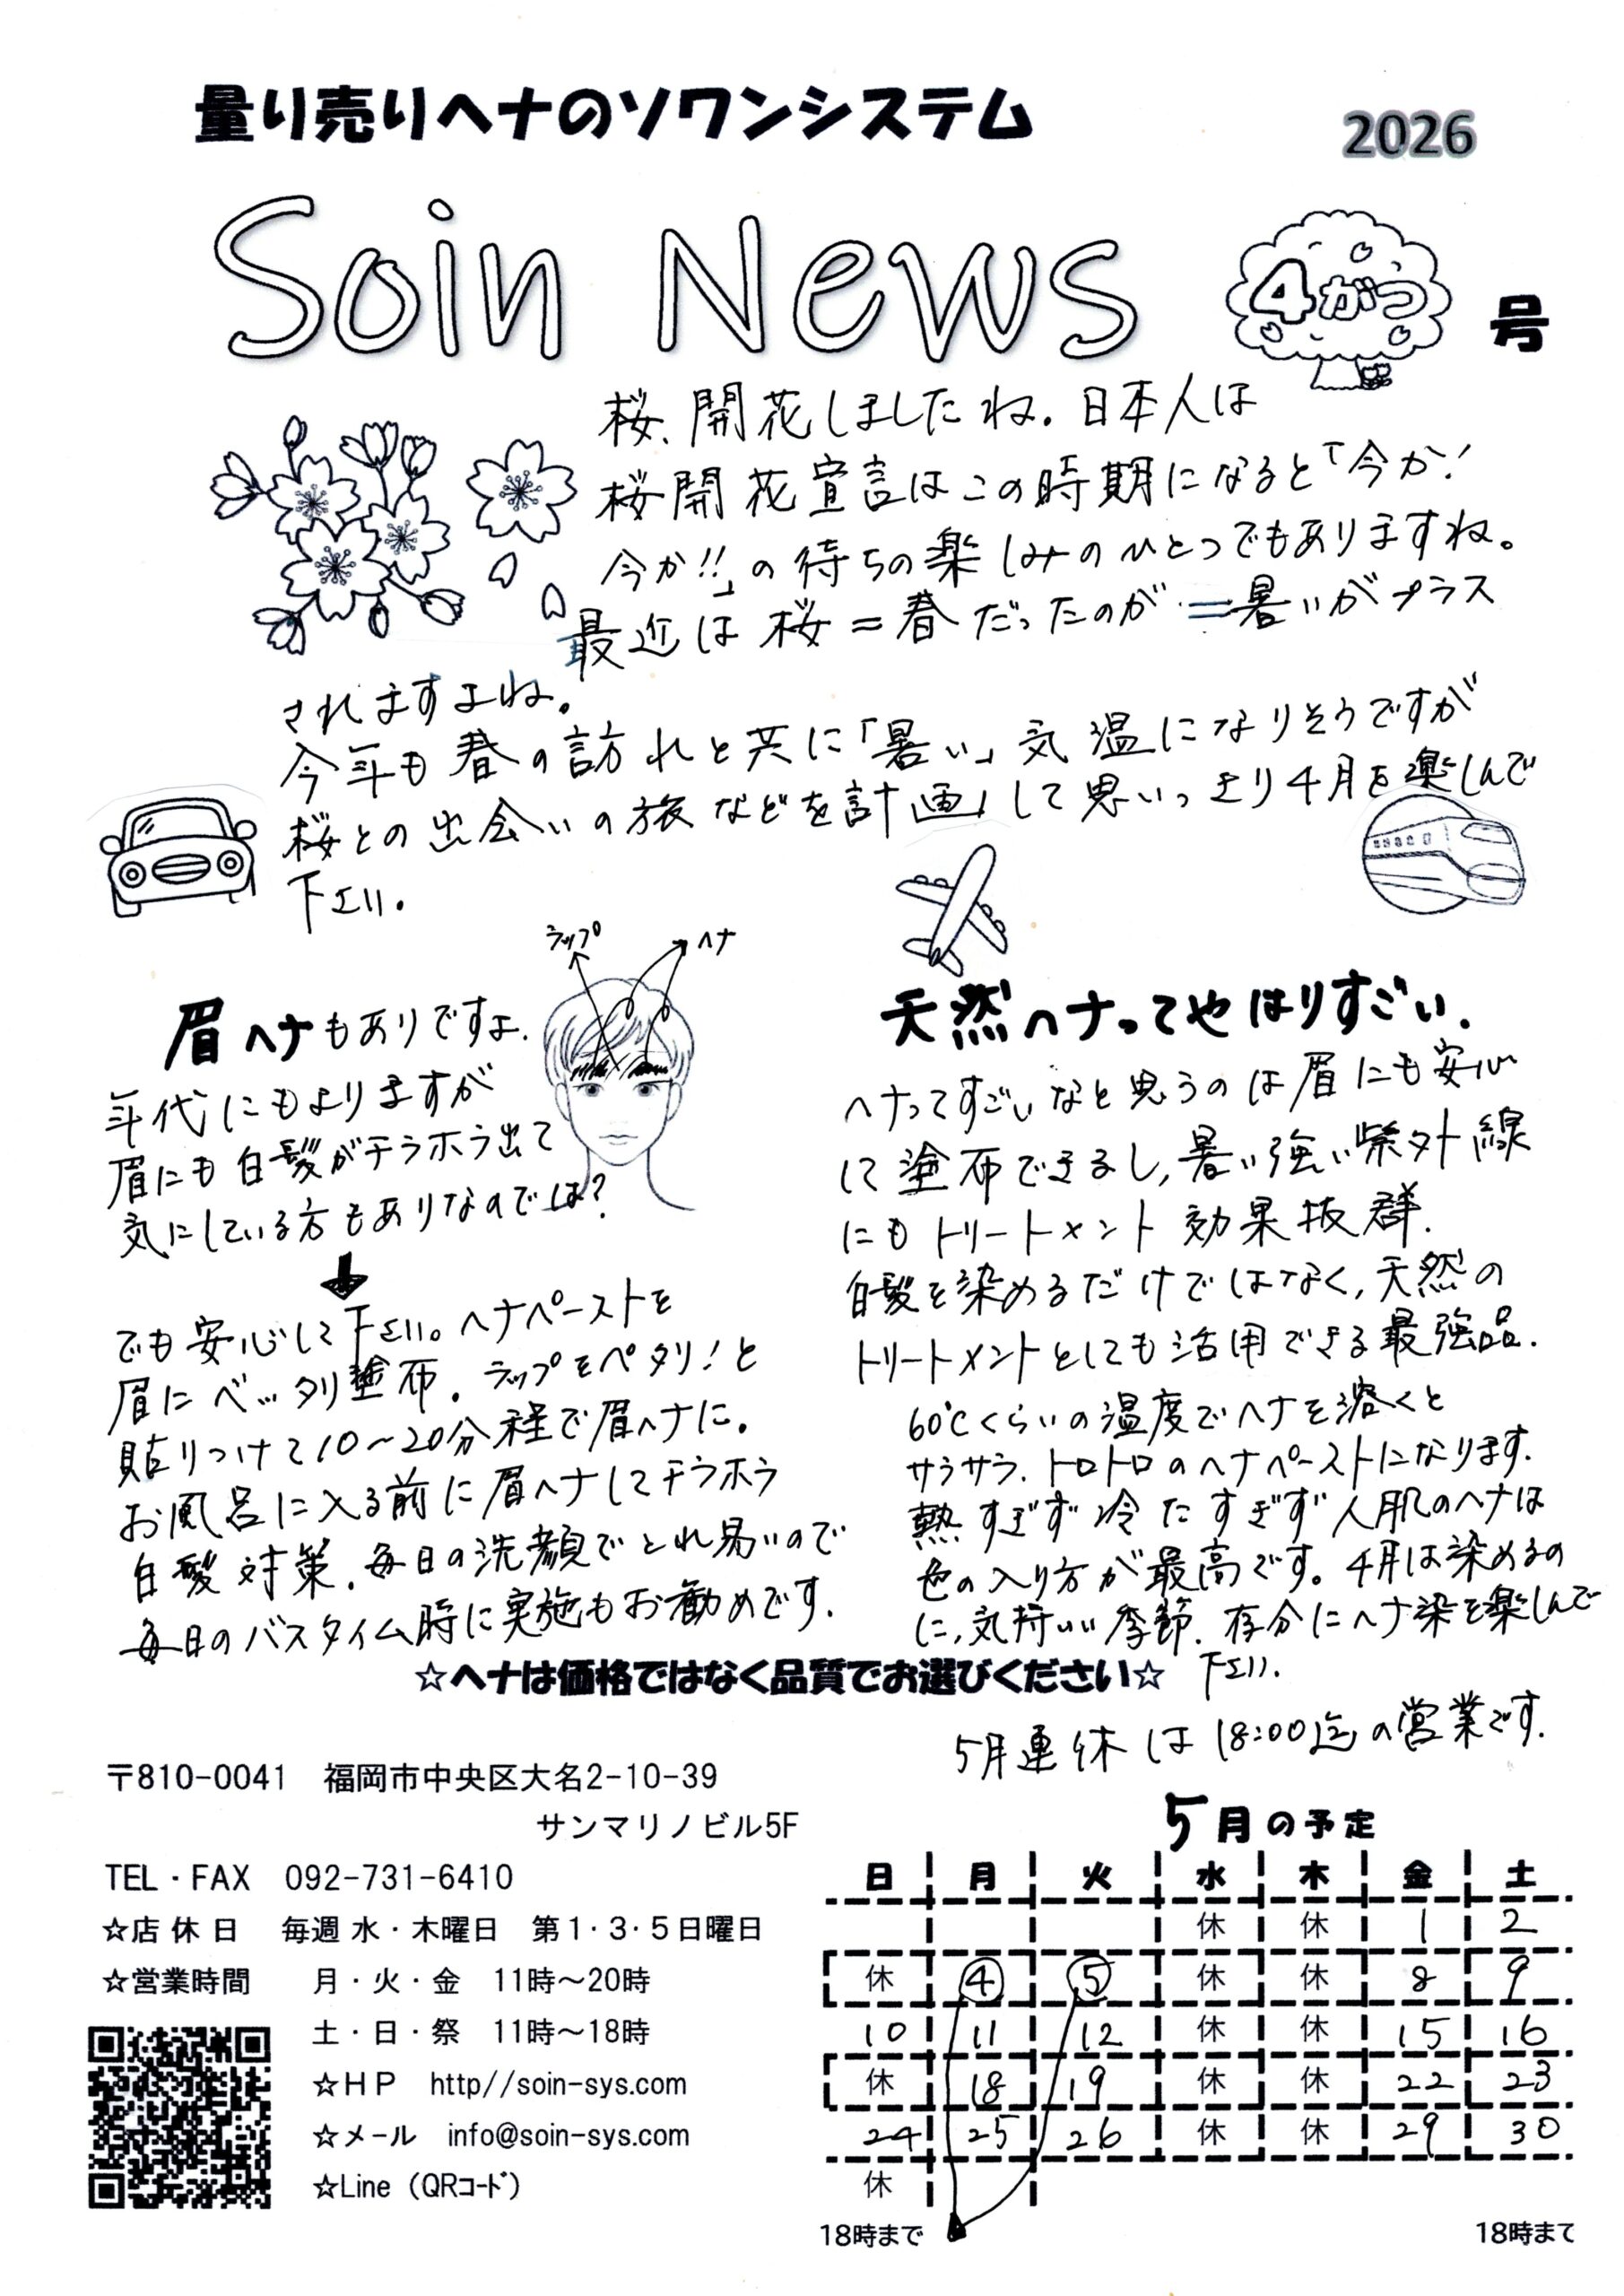 量り売りヘナのソワンシステム
2026
Soin News
4がつ
号
桜、開花しましたね。日本人は
桜開花宣言はこの時期になると「今か!
今か!!」の待ちの楽しみのひとつでもありますね。
最近は桜=春だったのが=暑いがプラス
されますよね。
今年も春の訪れと共に「暑い」気温になりそうですが
桜との出会いの旅などを計画して思いっきり4月を楽しんで
下さい。
ラップ
ヘナ
眉ヘナもありですよ.
年代にもよりますが
眉にも白髪がチラホラ出て
気にしている方もありなのでは?
でも安心して下さい。ヘナペーストを
眉にベッタリ塗布.ラップをペタリ!と
貼りつけて10~20分程で眉ヘナに。
お風呂に入る前に眉ヘナしてチラホラ
白髪対策.毎日の洗顔でとれ易いので
毎日のバスタイム時に実施もお勧めです.
天然ヘナってやはりすごい.
ヘナってすごいなと思うのは眉にも安心
して塗布できるし,暑い強い紫外線
にもトリートメント効果抜群.
白髪を染めるだけではなく,天然の
トリートメントとしても活用できる最強品.
60℃くらいの温度でヘナを溶くと
サラサラ.トロトロのヘナペーストになります.
熱すぎず冷たすぎず人肌のヘナは
色の入り方が最高です。4月は染めるの
に,気持いい季節.存分にヘナ染を楽しんで
下さい.
☆ヘナは価格ではなく品質でお選びください☆
5月連休は18:00迄の営業です.
〒810-0041 福岡市中央区大名2-10-39
サンマリノビル5F
TEL・FAX 092-731-6410
☆店休日 毎週 水・木曜日 第1・3・5日曜日
☆営業時間 月・火・金 11時～20時
土・日・祭 11時～18時
☆HP http//soin-sys.com
☆メール info@soin-sys.com
☆Line（QRコード）
5月の予定
日 月 火 水 木 金 土
休 休 1 2
休 4 5 休 休 8 9
10 11 12 休 休 15 16
休 18 19 休 休 22 23
24 25 26 休 休 29 30
休
18時まで
18時まで